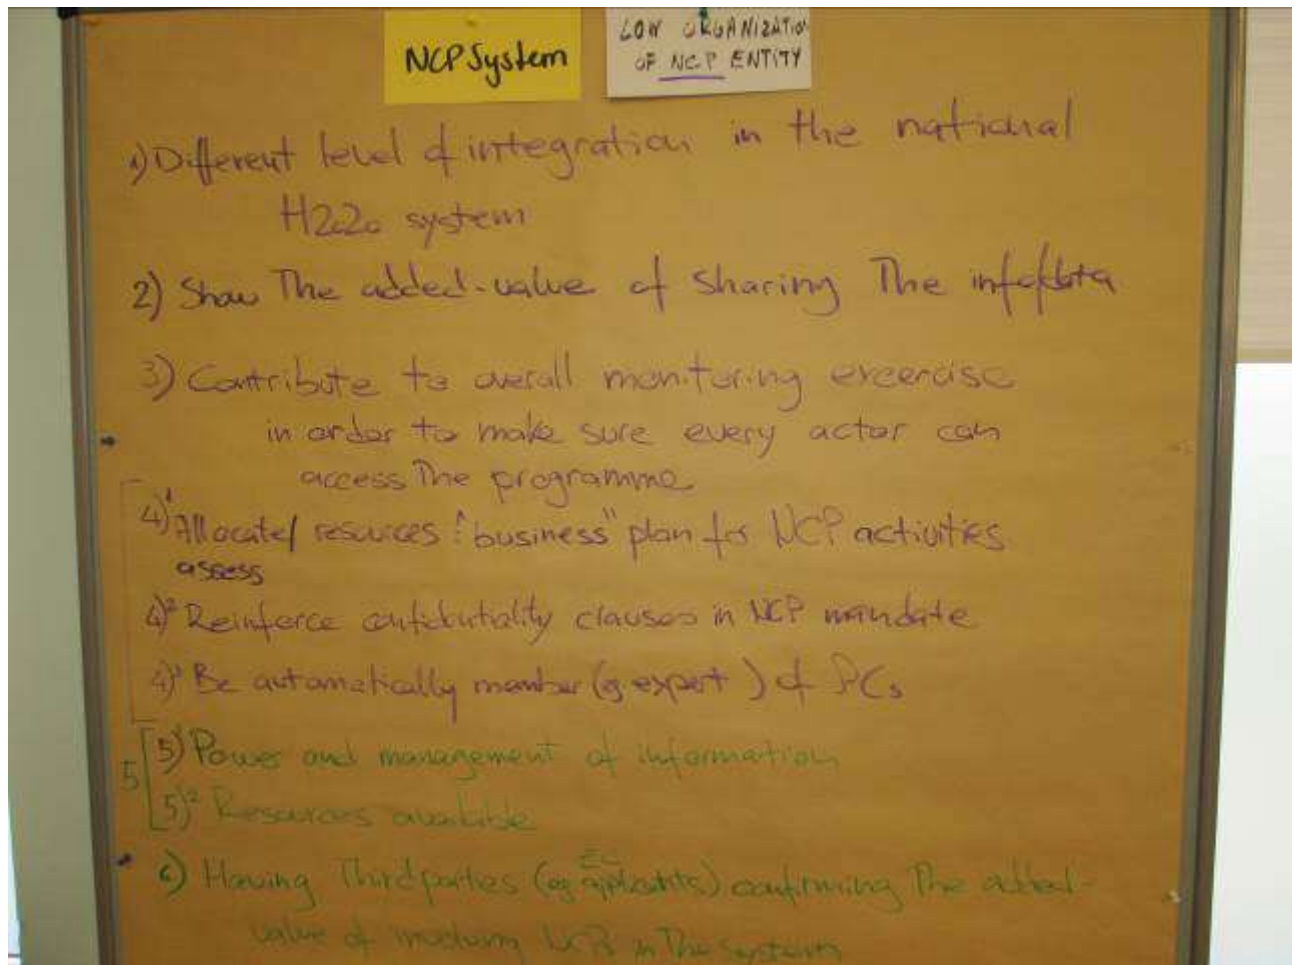 NCP System
LOW ORGANIZATION
OF NCP ENTITY
1) Different level of integration in the national
H2020 system
2) Show The added-value of sharing The info/data
3) Contribute to overall monitoring excercise
in order to make sure every actor can
access The programme
4)¹ Allocate/ resources : "business" plan for NCP activities
assess
4)² Reinforce confidentiality clauses in NCP mandate
4)³ Be automatically member (eg expert) of PCs
5)¹ Power and management of information
5
5)² Resources available
EC
6) Having Third parties (eg applicants) confirming The added-
value of involving NCPs in The system